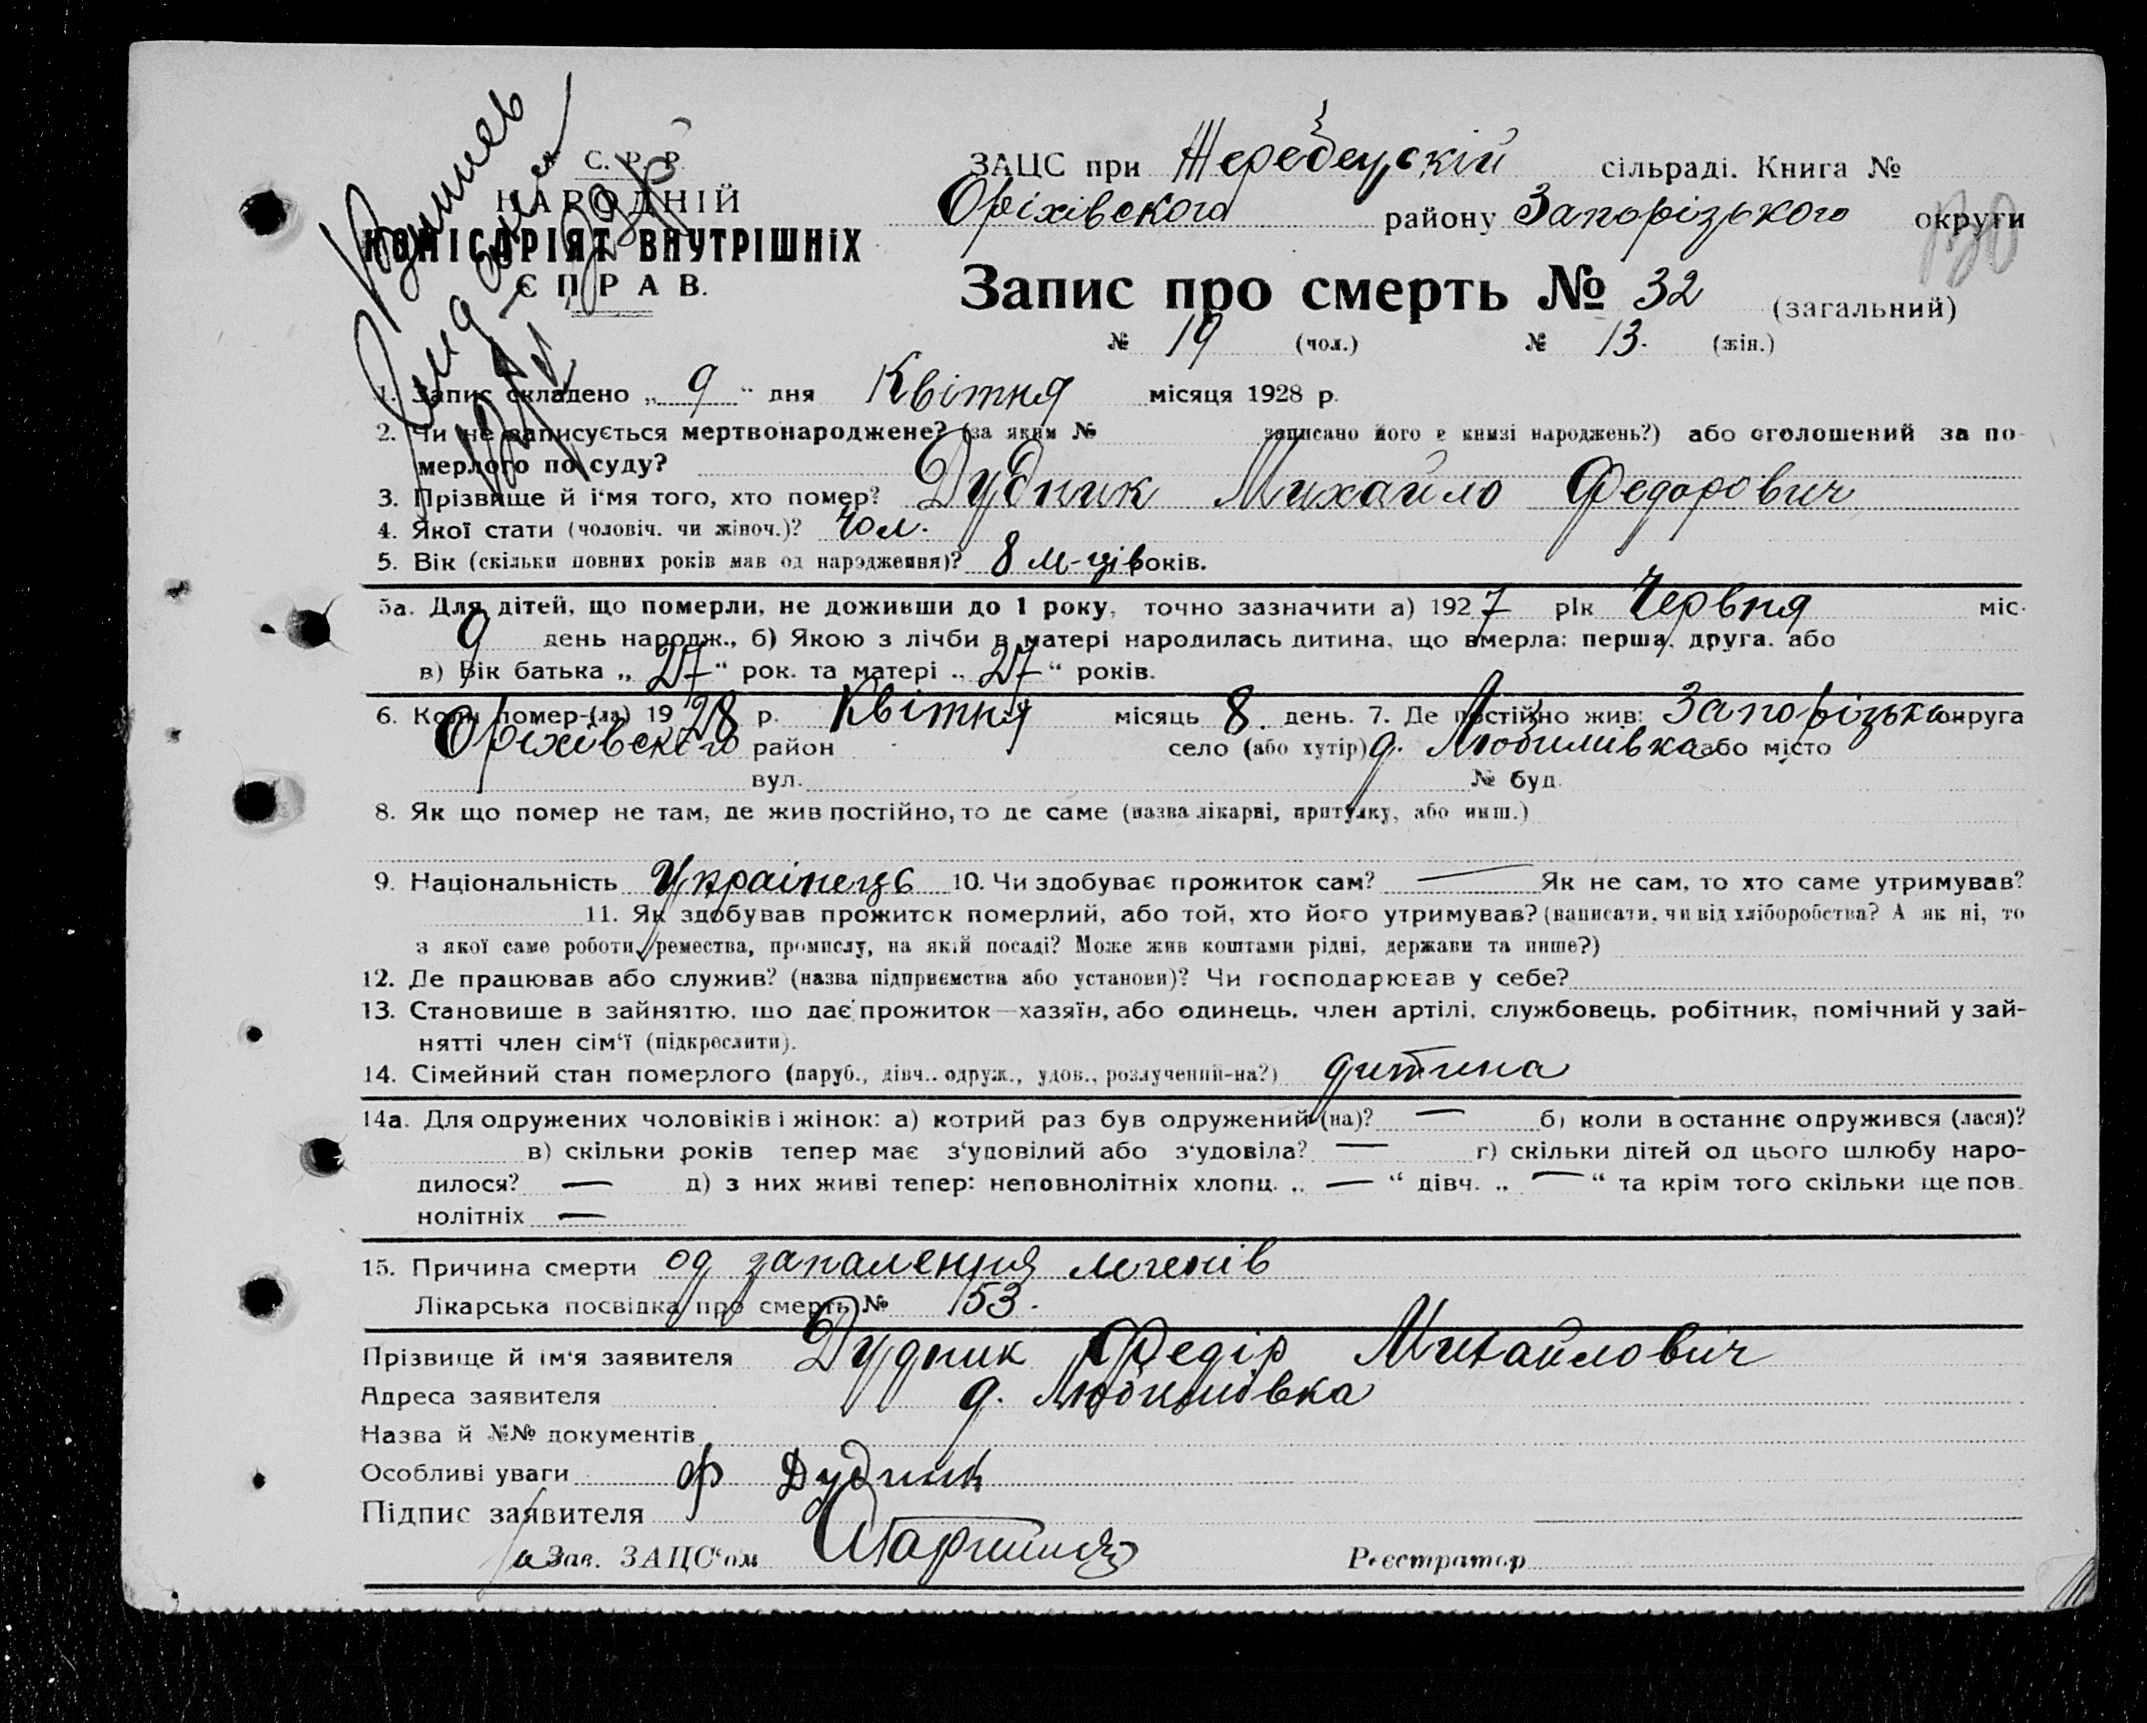 С. Р. Р.
НАРОДНІЙ
КОМІСАРІЯТ ВНУТРІШНІХ
СПРАВ.
ЗАЦС при Жеребецскій сільраді. Книга №
Оріхівского району Запорізького округи
130
Запис про смерть № 32 (загальний)
№ 19 (чол.) № 13. (жін.)
1. Запис складено „ 9 “ дня Квітня місяця 1928 р.
2. Чи не записується мертвонароджене? (за яким № записано його в книзі народжень?) або оголошений за по-
мерлого по суду?
3. Прізвище й і'мя того, хто помер? Дудник Михайло Федорович
4. Якої стати (чоловіч. чи жіноч.)? чол.
5. Вік (скільки повних років мав од народження)? 8 м-ців років.
5а. Для дітей, що померли, не доживши до 1 року, точно зазначити а) 1927 рік Червня міс.
9 день народж., б) Якою з лічби в матері народилась дитина, що вмерла: перша, друга, або
в) Вік батька „ 27 “ рок. та матері „ 27 “ років.
6. Коли помер-(ла) 1928 р. Квітня місяць 8. день. 7. Де постійно жив: Запорізька округа
Оріхівского район село (або хутір) д. Любимівка або місто
вул. № буд.
8. Як що помер не там, де жив постійно, то де саме (назва лікарні, притулку, або инш.)
9. Національність Украінець 10. Чи здобуває прожиток сам? — Як не сам, то хто саме утримував?
11. Як здобував прожиток померлий, або той, хто його утримував? (написати, чи від хліборобства? А як ні, то
з якої саме роботи, ремества, промислу, на якій посаді? Може жив коштами рідні, держави та инше?)
12. Де працював або служив? (назва підприємства або установи)? Чи господарював у себе?
13. Становище в зайняттю, що дає прожиток—хазяїн, або одинець, член артілі, службовець, робітник, помічний у зай-
нятті член сім'ї (підкреслити).
14. Сімейний стан померлого (паруб., дівч., одруж., удов., розлучений-на?) дитина
14а. Для одружених чоловіків і жінок: а) котрий раз був одружений (на)? — б) коли востаннє одружився (лася)?
в) скільки років тепер має з'уловілий або з'удовіла? — г) скільки дітей од цього шлюбу наро-
дилося? — д) з них живі тепер: неповнолітніх хлопц. „ — “ дівч. „ — “ та крім того скільки ще пов.
нолітніх —
15. Причина смерти од запалення легенів
Лікарська посвідка про смерть № 153.
Прізвище й ім'я заявителя Дудник Федір Михайловіч
Адреса заявителя д. Любимівка
Назва й №№ документів
Особливі уваги
Ф Дудник
Підпис заявителя
Зав. ЗАЦС'ом Реєстратор